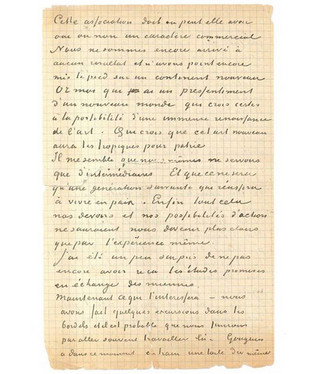 Cette association doit ou peut elle avoir
oui ou non un caractère commercial
Nous ne sommes encore arrivé à
aucun résultat et n'avons point encore
mis le pied sur un continent nouveau
Or moi que ai un pressentiment
d'un nouveau monde que crois certes
à la possibilité d'une immense renaissance
de l'art. Qui crois que cet art nouveau
aura les tropiques pour patrie
Il me semble que nous-mêmes ne servons
que d'intermédiaires Et que ce ne sera
qu'une génération suivante qui réussira
à vivre en paix. Enfin tout cela
nos devoirs et nos possibilités d'action
ne sauraient nous devenir plus clairs
que par l'expérience même.
J'ai été un peu surpris de ne pas
encore avoir reçu les études promises
en échange des miennes
Maintenant ce qui t'intéressera – nous
avons fait quelques excursions dans les
bordels et il est probable que nous finirons
par aller souvent travailler là. Gauguin
a dans ce moment en train une toile du même